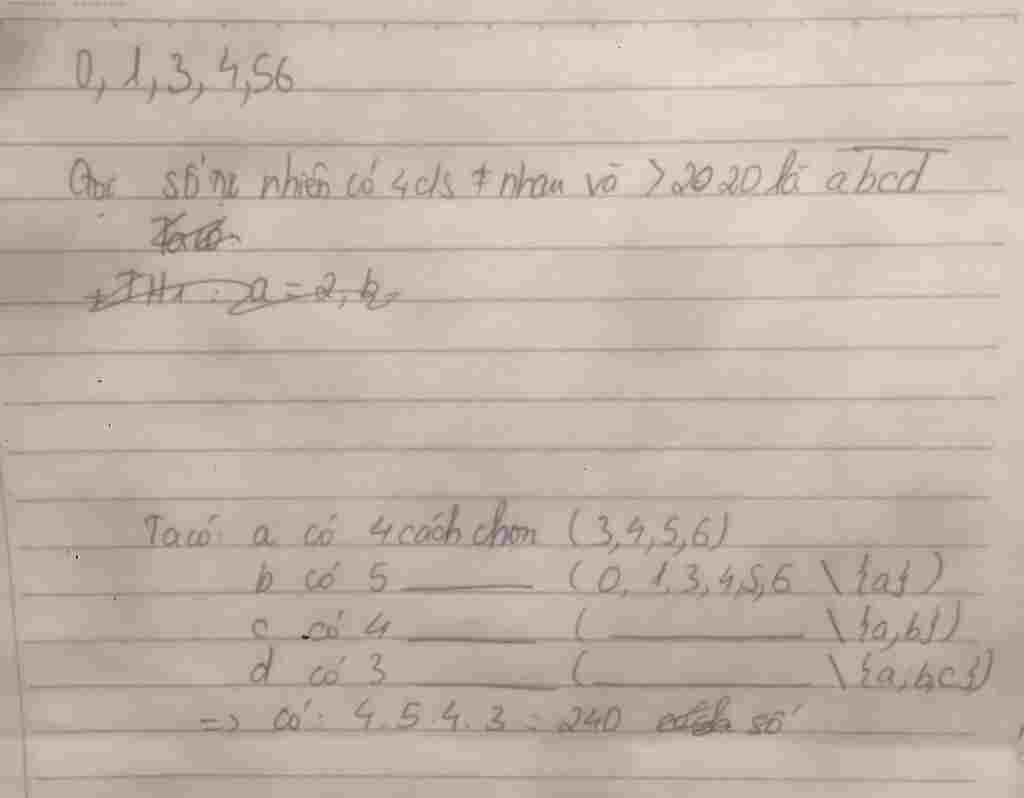 0, 1, 3, 4, 5 6
Gọi số tự nhiên có 4 c/s ≠ nhau và > 2020 là abcd
Ta có
+ TH1 : a = 2, b
Ta có: a có 4 cách chọn (3, 4, 5, 6)
b có 5 ______ (0, 1, 3, 4, 5, 6 \ {a})
c có 4 ______ ( ______ \ {a, b})
d có 3 ______ ( ______ \ {a, b, c})
=> có: 4 . 5 . 4 . 3 = 240 số